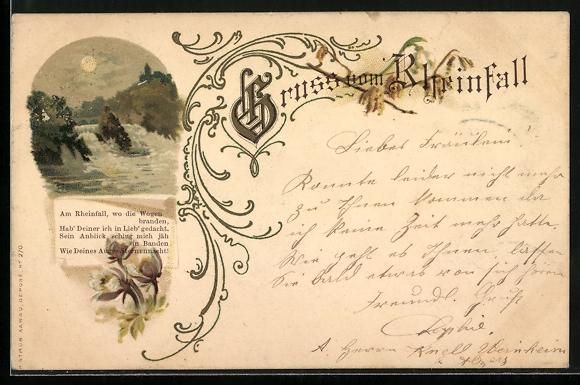 Gruss vom Rheinfall
Am Rheinfall, wo die Wogen
branden,
Hab' Deiner ich in Lieb' gedacht.
Sein Anblick schlug mich jäh
in Banden
Wie Deines Auges Sternennacht!
Liebes Fräulein!
Konnte leider nicht mehr
zu Ihnen kommen da
ich keine Zeit mehr hatte.
Wie geht es Ihnen, lassen
Sie bald etwas von sich hören
Freundl. Gruß
Sophie.
A. Herrn
AARAU, DEPOSÉ, No 270